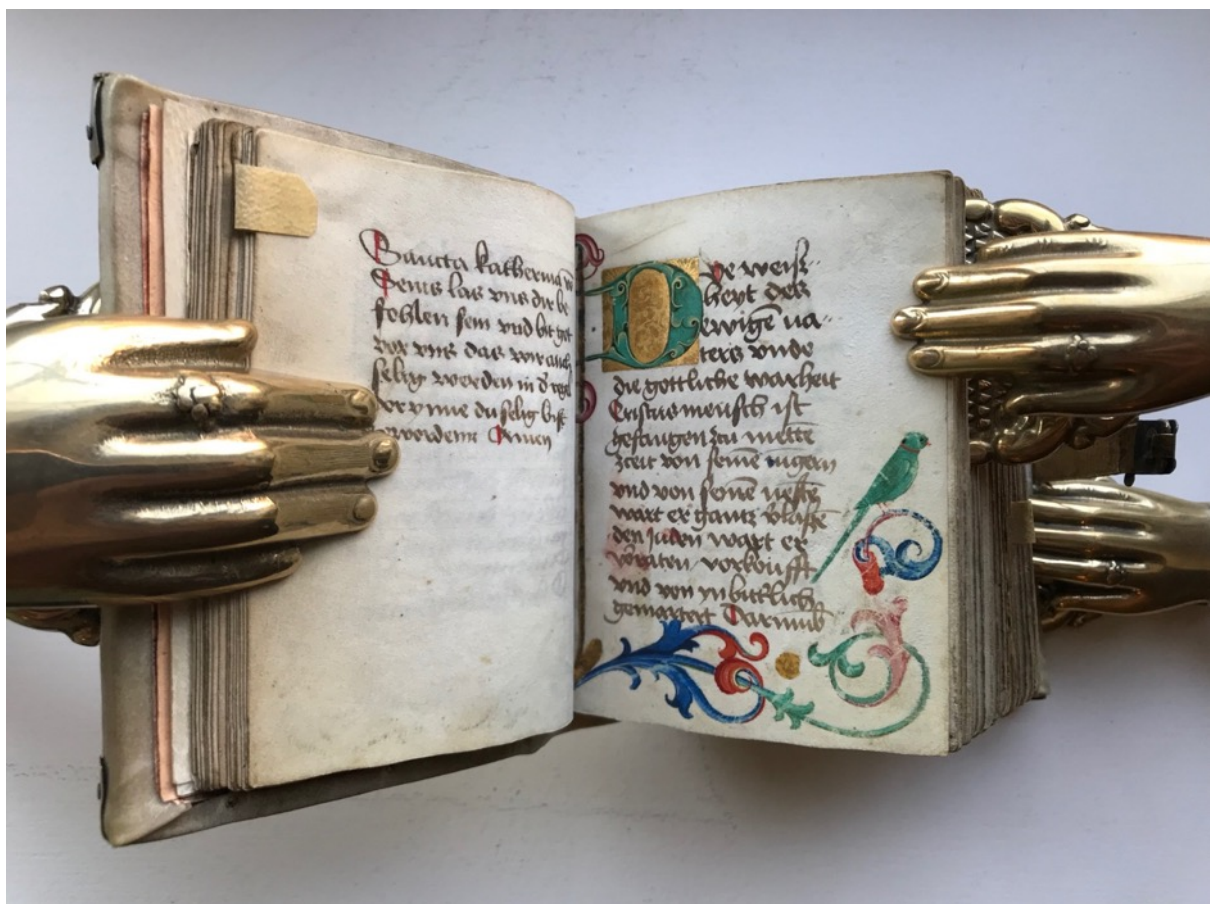 Sancta katherina vō
Senis las vns dir be
fohlen sein vnd bit got
vor vns das wir auch
selig werden in d̕ regel
dorynne du selig bist
worden Amen
Dye weisz-
heyt des
ewigē va-
ters vnde
die gottliche warheit
Cristus mensch ist
gefangen zcu mette
zceit von seinē iūgern
vnd von seinē
wart er gantz
den juden wart er
vorraten vorkoufft
vnd von yn bitterlich
gemartert Darumb